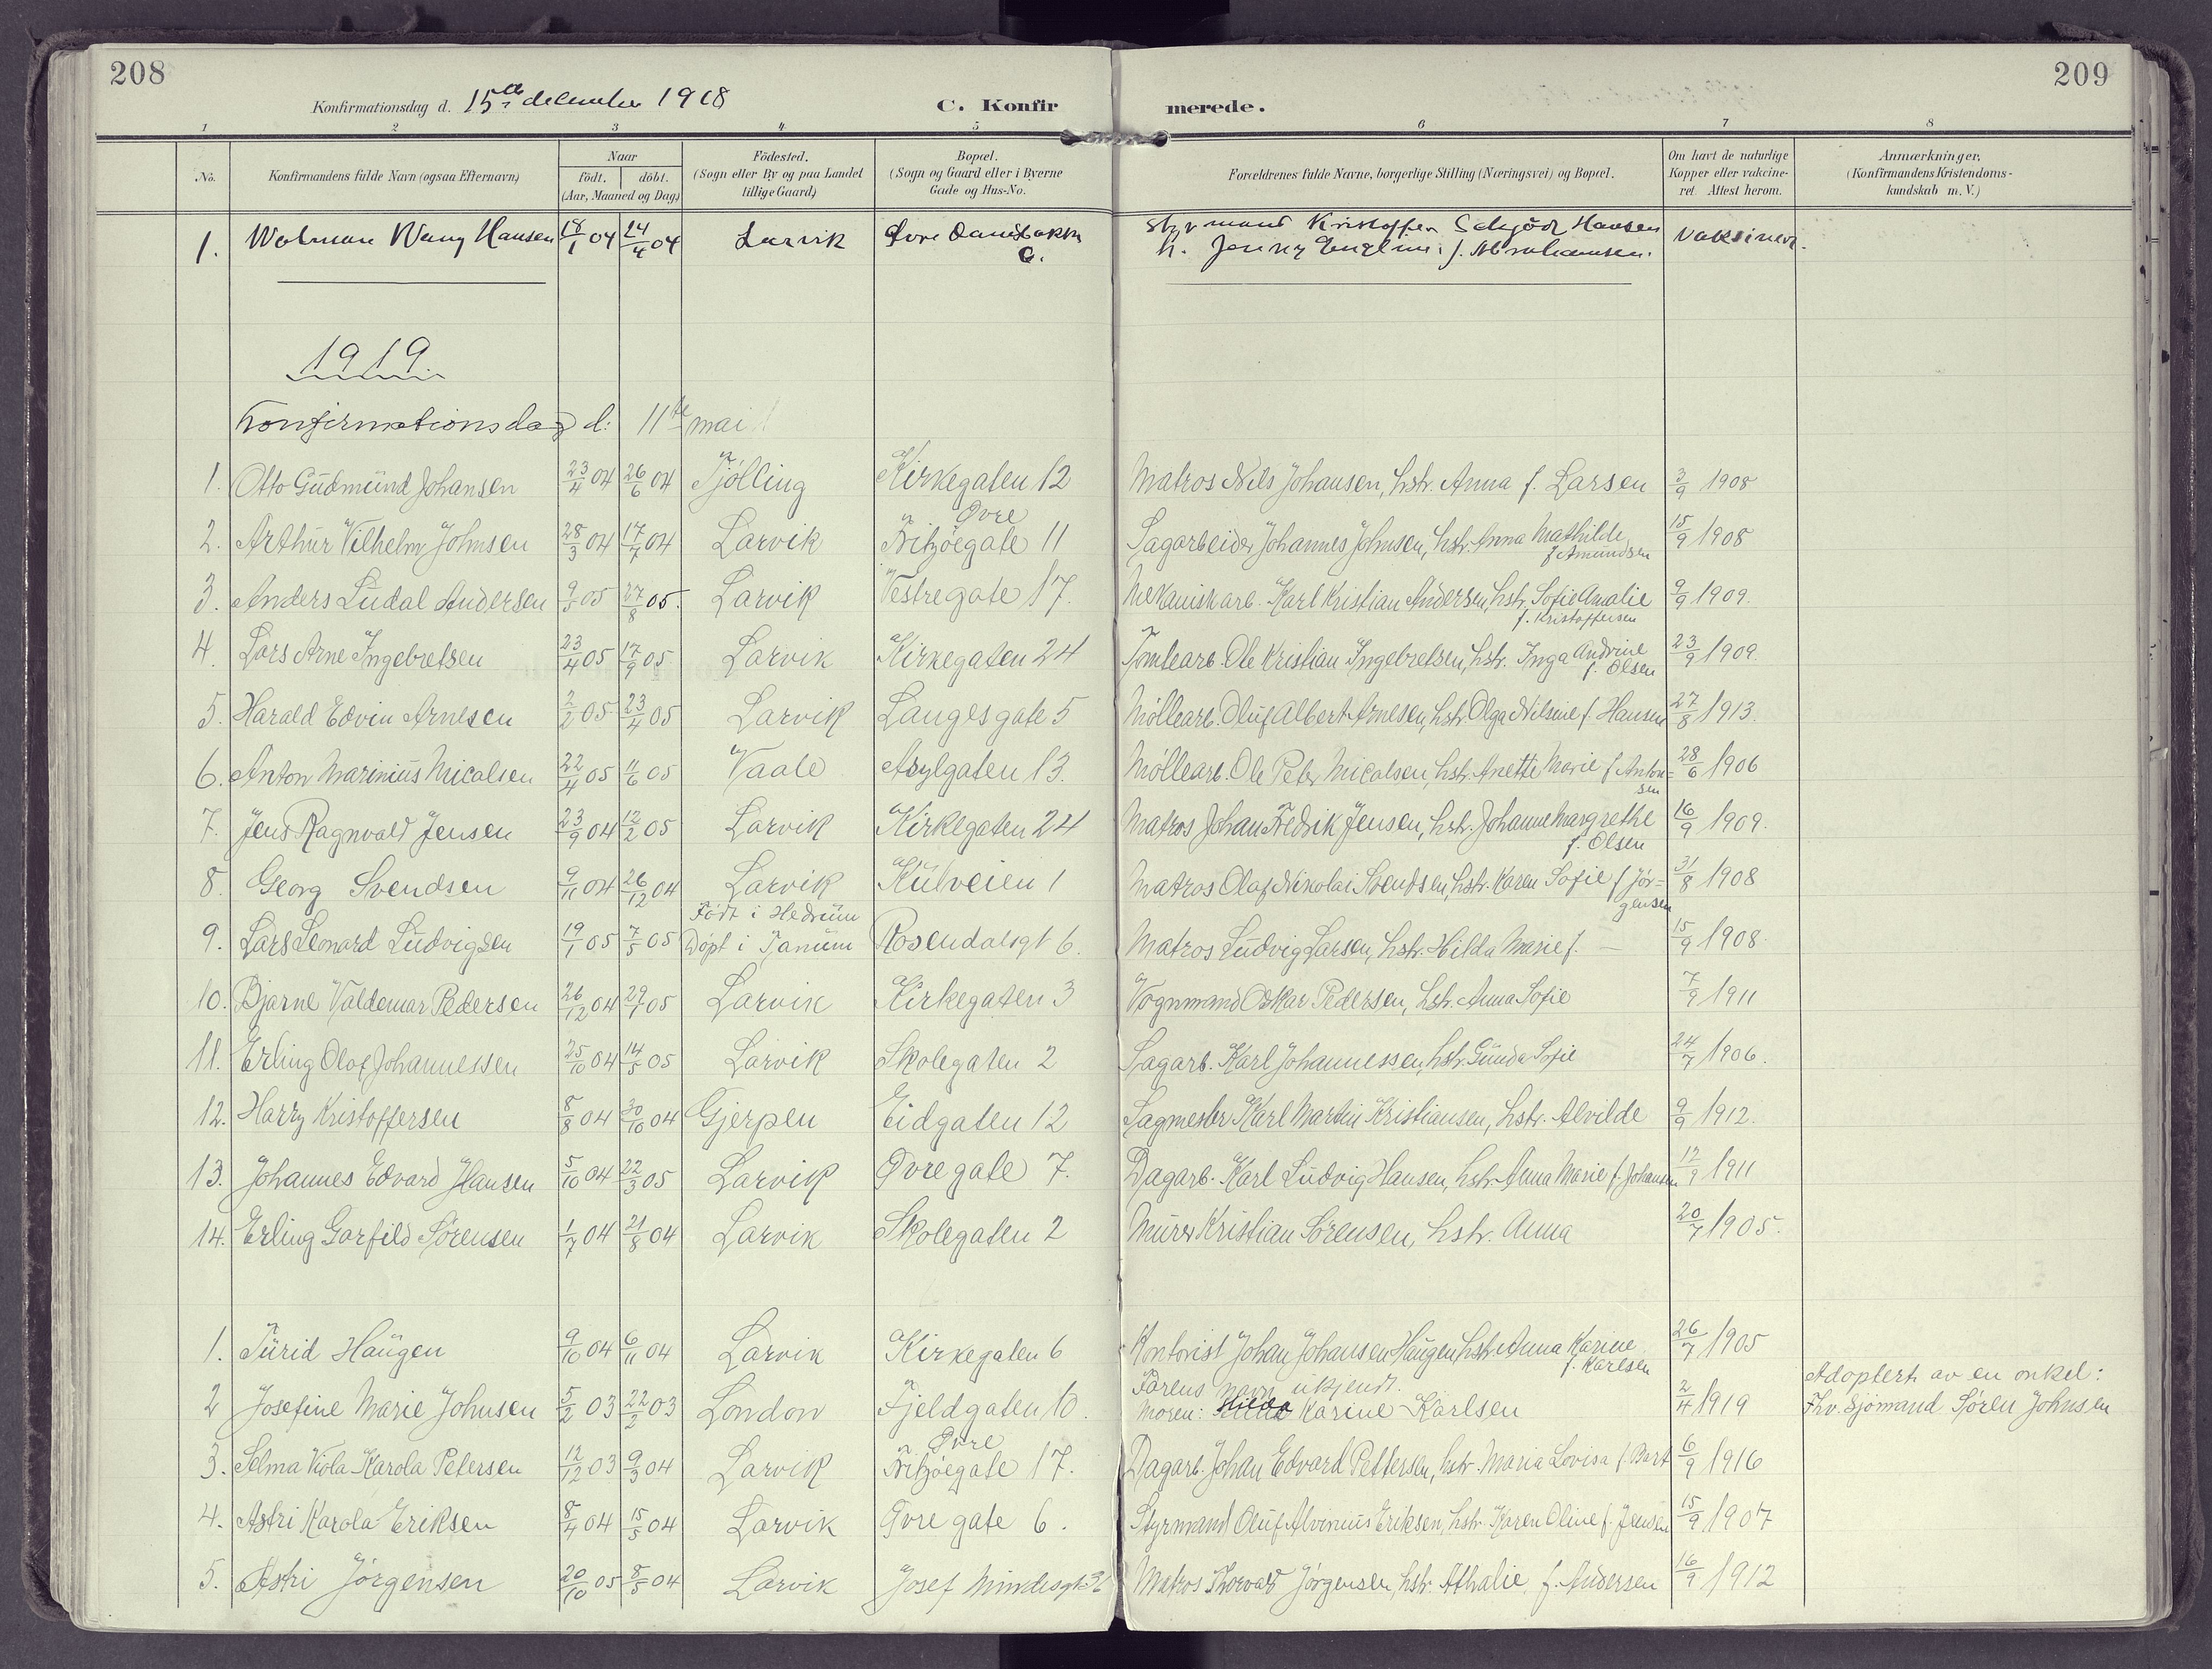 208
209
Konfirmationsdag d. 15de december 1918
C. Konfirmerede.
1 2 3 4 5 6 7 8
No.
Konfirmandens fulde Navn (ogsaa Efternavn)
Naar
födt. döbt.
(Aar, Maaned og Dag)
Födested.
(Sogn eller By og paa Landet
tillige Gaard)
Bopæl.
(Sogn og Gaard eller i Byerne
Gade og Hus-No.
Forældrenes fulde Navne, borgerlige Stilling (Næringsvei) og Bopæl.
Om havt de naturlige
Kopper eller vakcine-
ret. Attest herom.
Anmærkninger,
(Konfirmandens Kristendoms-
kundskab m. V.)
1. Wang Hansen 18/1 04 24/4 04 Larvik Øvre 6. Styrmand Kristoffer Hansen
h. Jenny f. Abrahamsen. vaksinert.
1919.
Konfirmationsdag d: 11te mai
1. Otto Gudmund Johansen 23/4 04 26/6 04 Tjölling Kirkegaten 12 Matros Nils Johansen, hstr. Anna f. Larsen 3/9 1908
2. Arthur Vilhelm Johnsen 28/3 04 17/7 04 Larvik Øvre Fritzöegate 11 Sagarbeider Johannes Johnsen, hstr. Anna Mathilde
f Amundsen 15/9 1908
3. Anders Ludal Andersen 9/5 05 27/8 05. Larvik Vestregate 17. Mekaniskarb. Karl Kristian Andersen, hstr. Sofie Amalie
f. Kristoffersen 9/9 1909.
4. Lars Arne Ingebretsen 23/4 05 17/9 05 Larvik Kirkegaten 24 Tomtearb. Ole Kristian Ingebretsen, hstr. Inga Andrine
f. Olsen 23/9 1909.
5. Harald Edvin Arnesen 2/2 05 23/4 05 Larvik Langesgate 5 Möllearb. Oluf Albert Arnesen, hstr. Olga Nilsine f. Hansen 27/8 1913.
6. Anton Marinius Micalsen 22/4 05 11/6 05 Vaale Asylgaten 13. Möllearb. Ole Peter Micalsen, hstr. Anette Marie f. Anton=
sen 28/6 1906
7. Jens Ragnvald Jensen 23/9 04 12/2 05 Larvik Kirkegaten 24 Matros Johan Fredrik Jensen, hstr. Johanne Margrethe
f. Olsen 16/9 1909.
8. Georg Svendsen 9/11 04 26/12 04 Larvik Kulveien 1 Matros Olaf Nikolai Svendsen, hstr. Karen Sofie f Jör=
gensen 31/8 1908
9. Lars Leonard Ludvigsen 19/1 05 7/5 05 Födt i Hedrum
Döpt i Tanum Rosendalsgt 6. Matros Ludvig Larsen, hstr. Hilda Marie f. — 15/9 1908.
10. Bjarne Valdemar Pedersen 26/12 04 29/1 05 Larvik Kirkegaten 3 Vognmand Oskar Pedersen, hstr. Anna Sofie 7/9 1911
11. Erling Olaf Johannessen 25/10 04 14/5 05 Larvik Skolegaten 2 Sagarb. Karl Johannessen, hstr. Gunda Sofie 24/7 1906.
12. Harry Kristoffersen 8/8 04 30/10 04 Gjerpen Eidgaten 12 Sagmester Karl Martin Kristiansen, hstr. Alvilde 9/9 1912.
13. Johannes Edvard Hansen 5/10 04 22/3 05 Larvik Øvregate 7. Dagarb. Karl Ludvig Hansen, hstr. Anna Marie f. Johansen 12/9 1911
14. Erling Garfild Sörensen 1/7 04 21/8 04 Larvik Skolegaten 2 Murer Kristian Sörensen, hstr. Anna 20/7 1905.
1. Turid Haugen 9/10 04 6/11 04 Larvik Kirkegaten 6 Kontorist Johan Johansen Haugen, hstr. Anna Karine
f. Karlsen 26/7 1905
2 Josefine Marie Johnsen 5/2 03 22/2 03 London Fjeldgaten 10. Farens navn ukjendt.
Moren: Hilda Karine Karlsen 2/4 1919 Adoptert av en onkel:
Fhv. Sjömand Sören Johnsen
3. Selma Viola Karola Petersen 12/12 03 9/3 04 Larvik Øvre Fritzöegate 17. Dagarb. Johan Edvard Pettersen, hstr. Maria Lovisa f. Bart 6/9 1916
4. Astri Karola Eriksen 8/4 04 15/5 04 Larvik Øvregate 6. Styrmand Oluf Alvinius Eriksen, hstr. Karen Oline f. Jensen 15/9 1907
5. Astri Jörgensen 20/10 05 8/5 04 Larvik Josef Mindesgt. Matros Thorvald Jörgensen, hstr. Athalie f. Andersen 16/9 1912